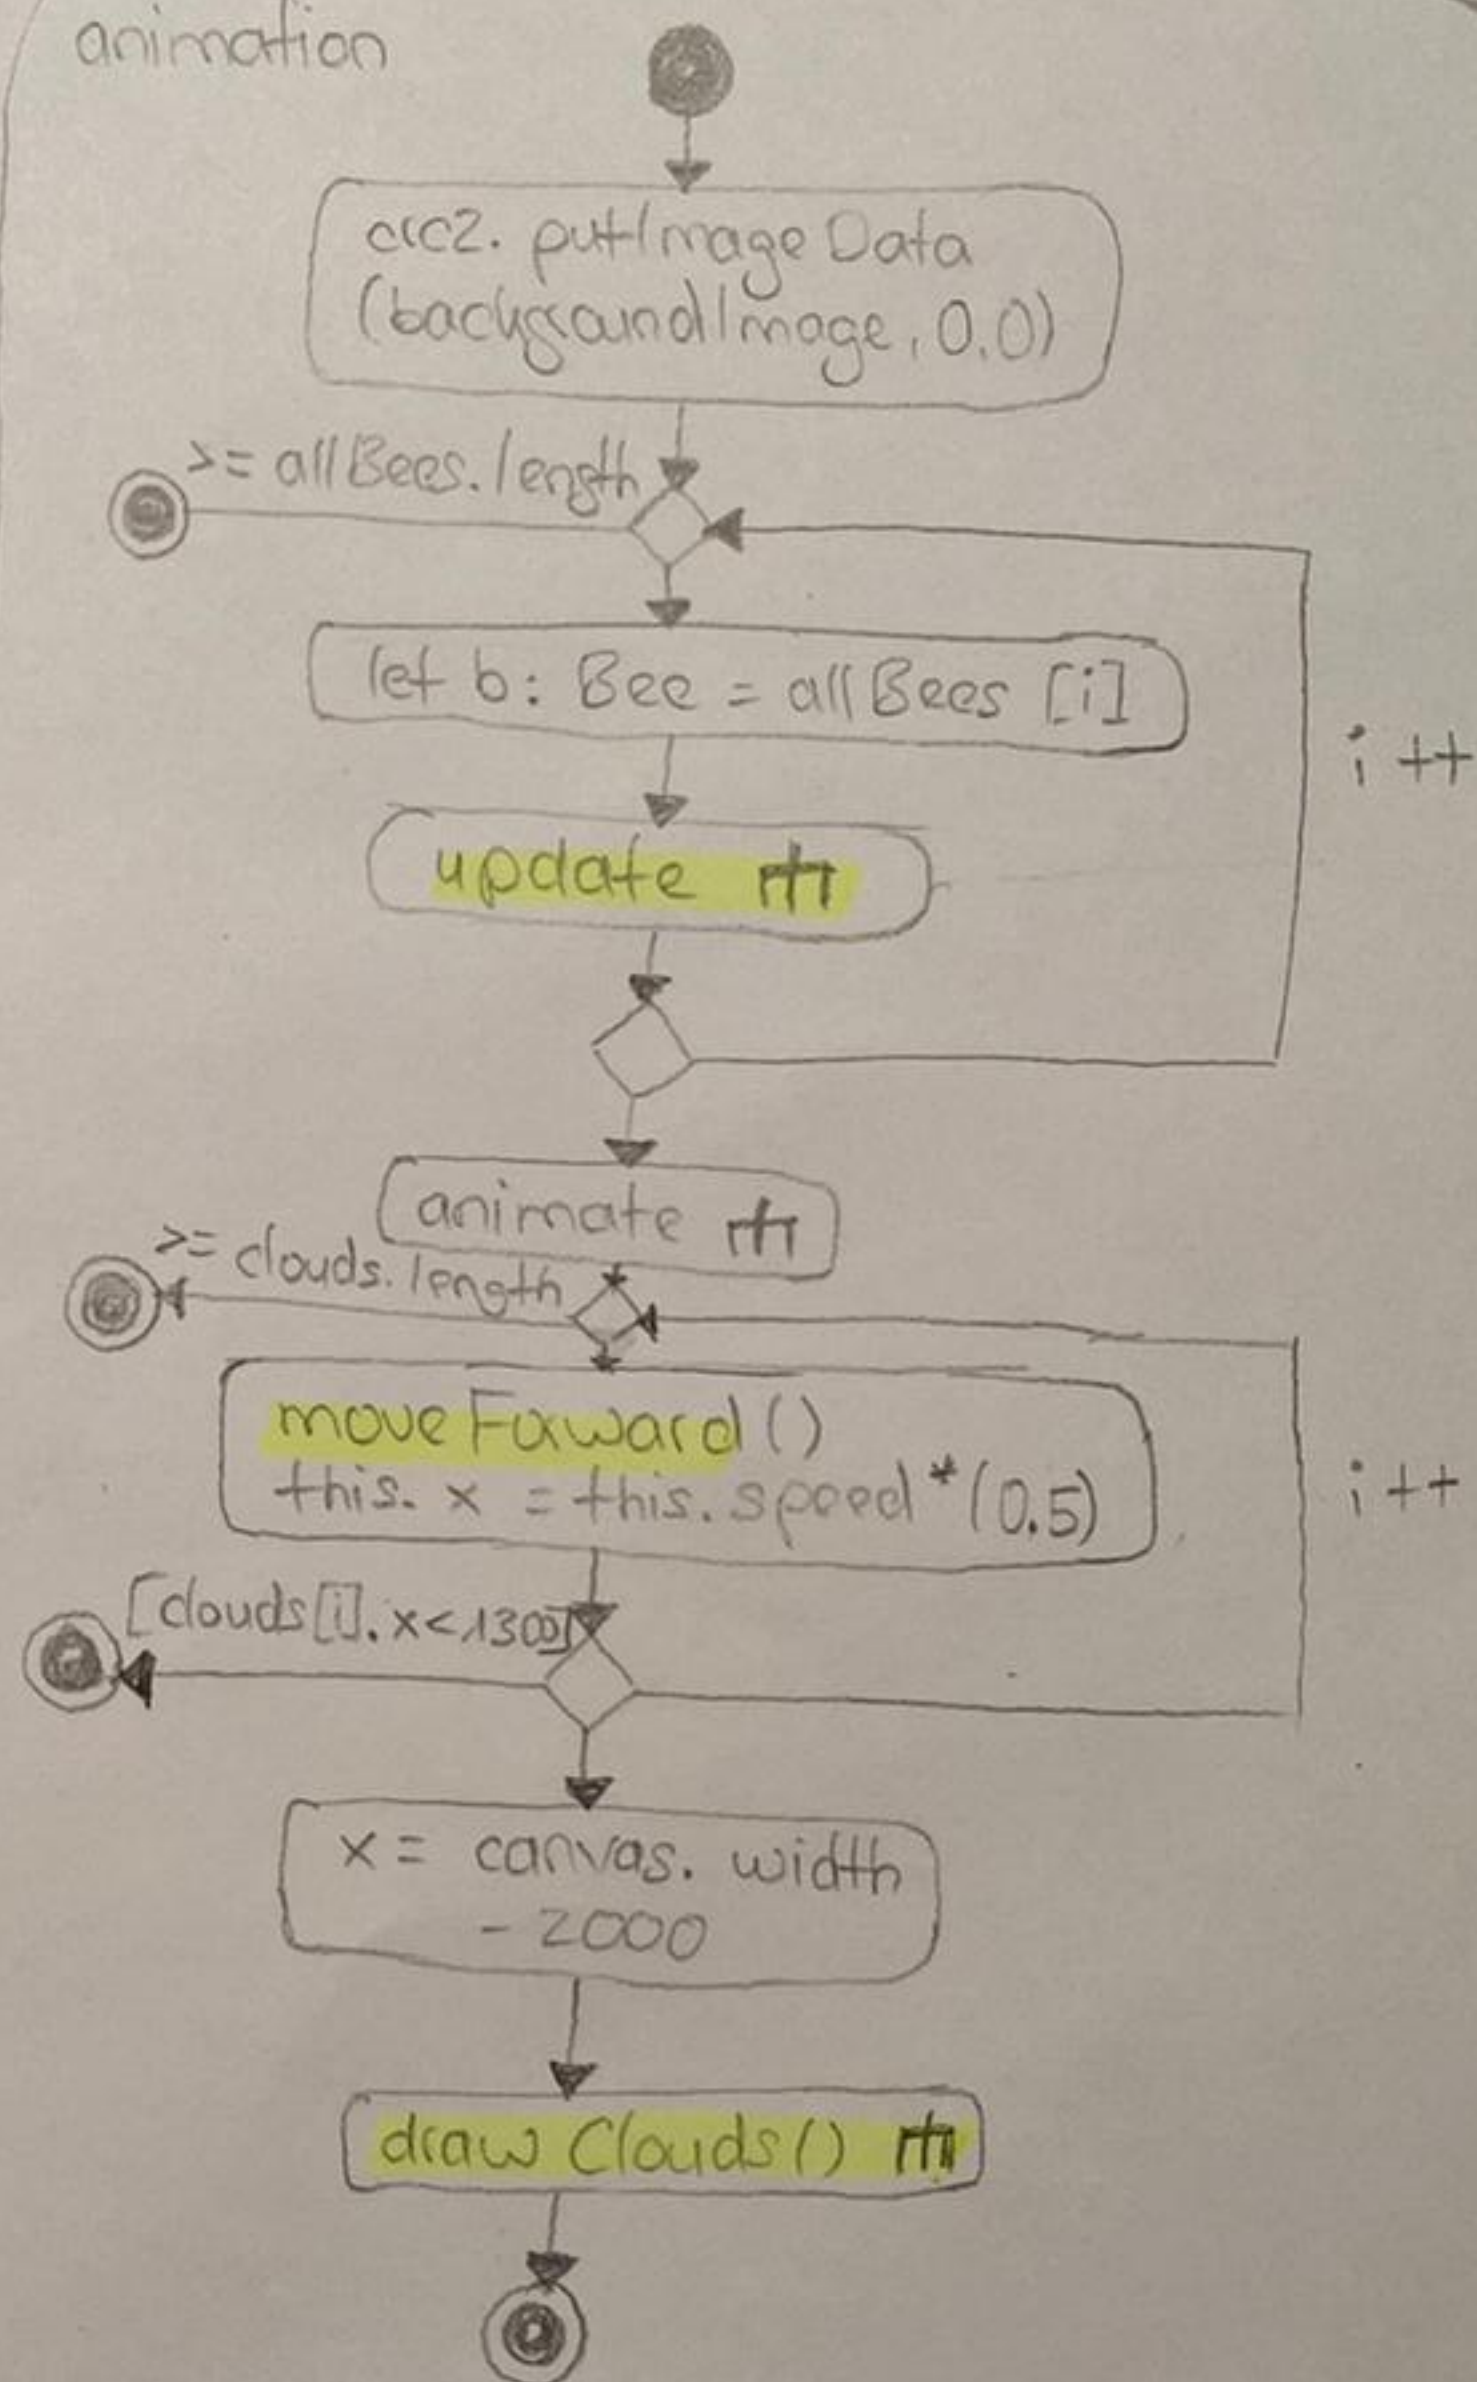 animation
crc2. putImageData
(backgroundImage, 0.0)
>= allBees.length
let b: Bee = allBees [i]
i ++
update
animate
>= clouds.length
moveForward()
this. x = this. speed*(0.5)
i ++
[clouds[i]. x<1300]
x = canvas. width
- 2000
draw Clouds()